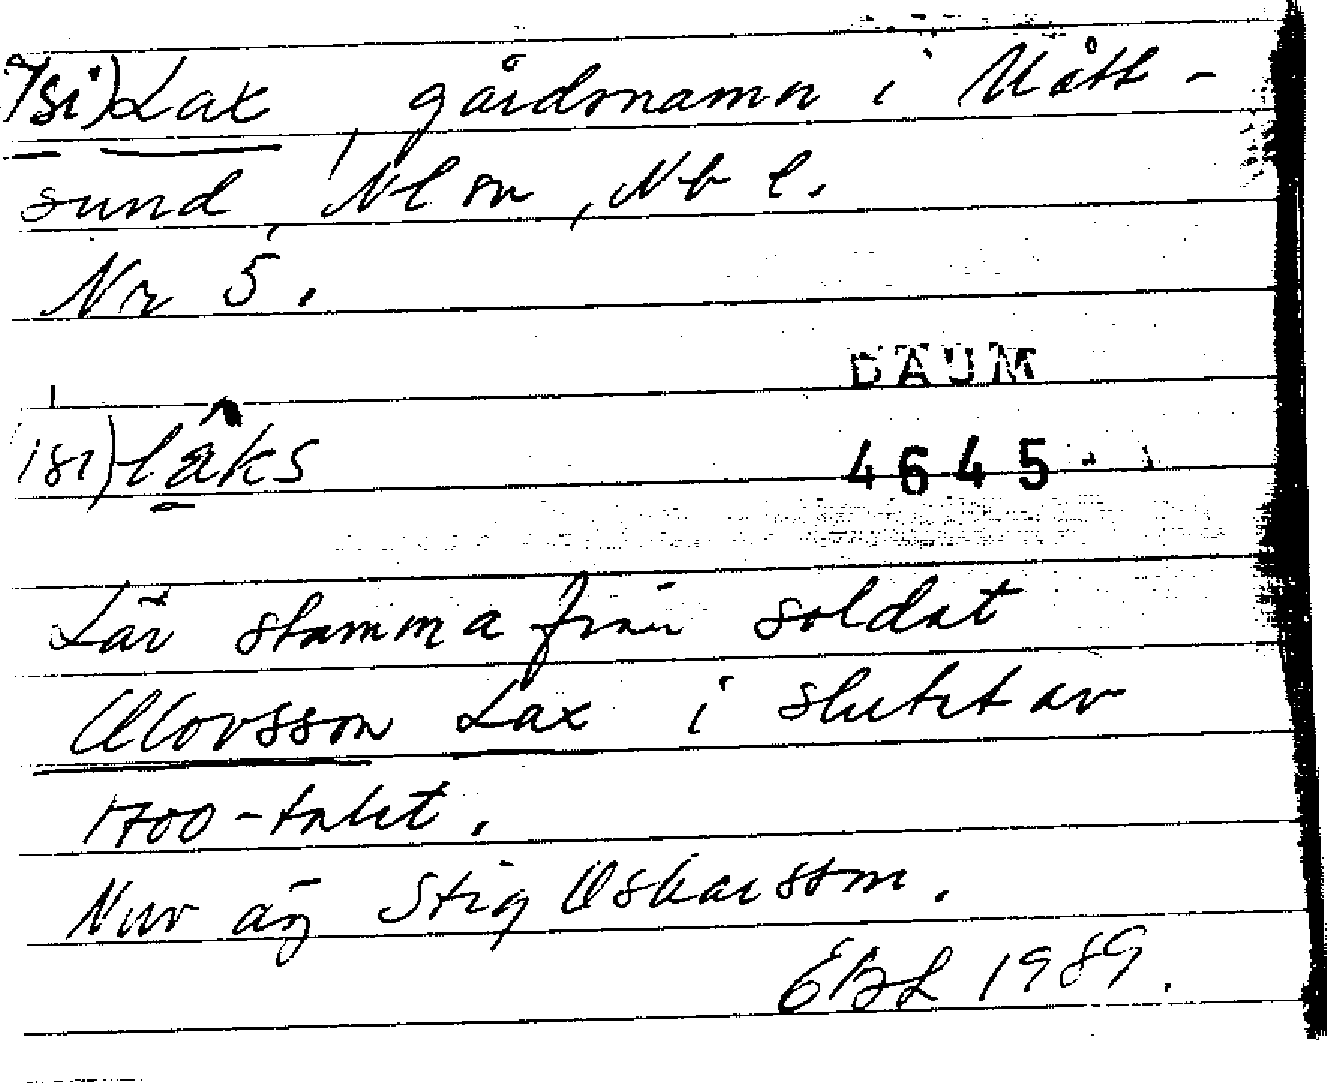 (si) Lax, gårdsnamn i Mått-
sund, Nl sn, Nb l.
Nr 5.
DAUM
(si) lâks
4645
Lär stamma från soldat
Olovsson Lax i slutet av
1700-talet.
Nuv äg Stig Oskarsson.
EBL 1989.